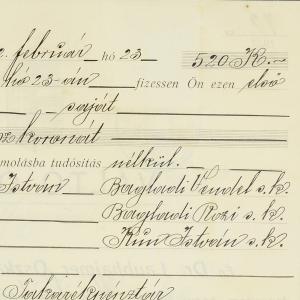 2. február hó 23 520 K.-
hó 23-án fizessen Ön ezen első
saját
koronát
molásba tudósítás nélkül.
István Baglyadi Vendel s. k.
Baglyadi Rozi s. k.
Kun István s. k.
Takarékpénztár